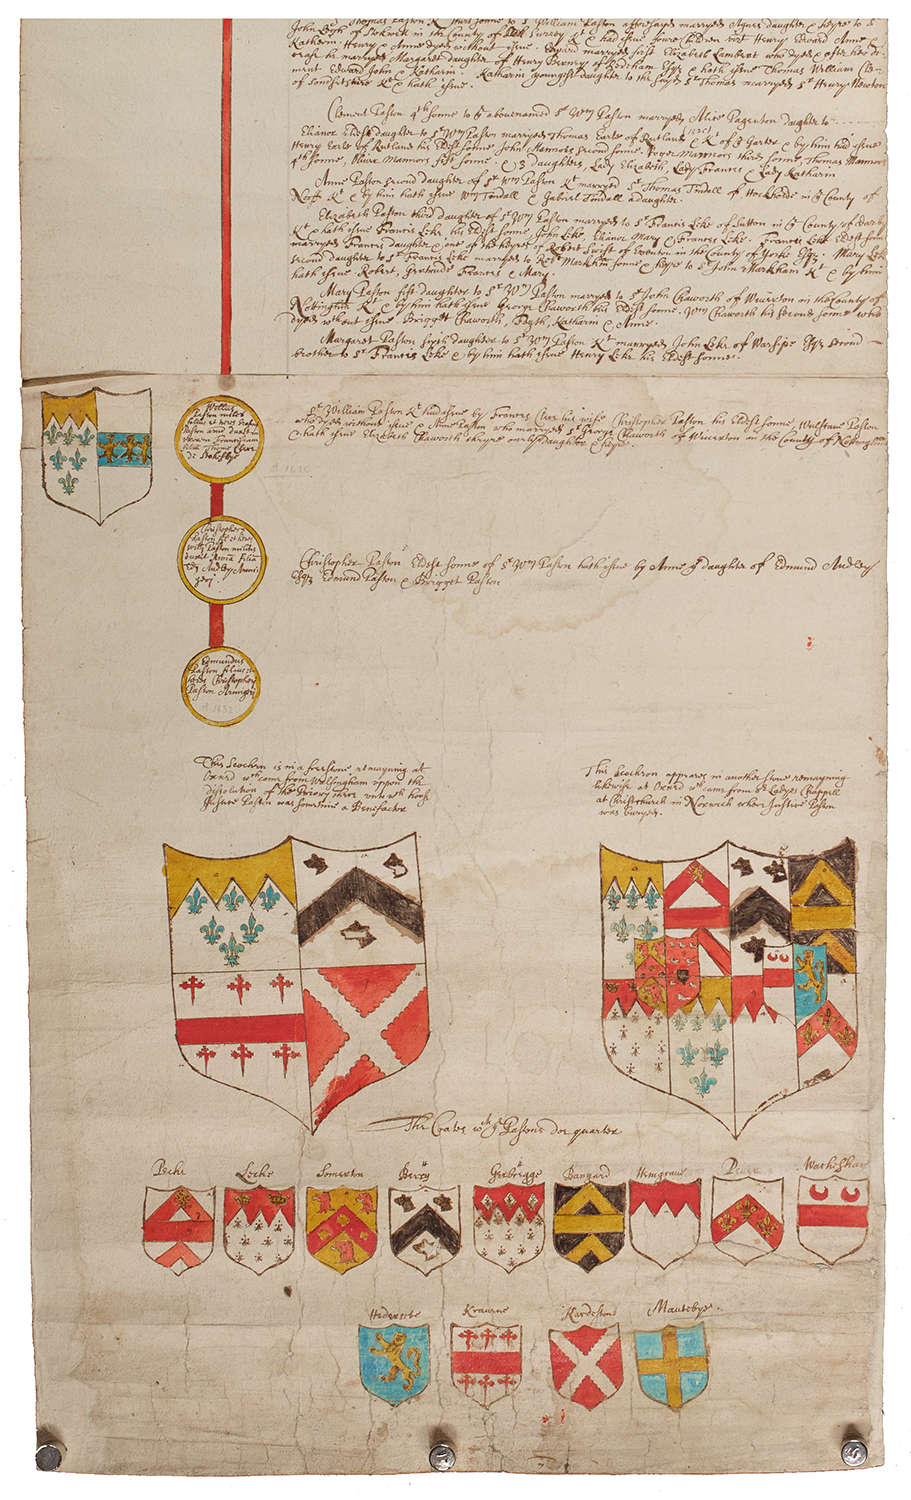 Sr Thomas Paston Kt third sonne to Sr William Paston aforesayd maryed Agnes daughter & heyre to Sr
John Leigh of Stockwell in the County of Surrey Kt & had issue foure children vizt Henry Edward Anne &
Katherin Henry & Anne dyed without issue. Edward marryed first Elizabeth Lambert who dyed & after her
he marryed Margaret daughter of Henry Berney of Redham Esqr & hath issue Thomas William
Edward John & Katharin. Katharin youngest daughter to the sayd Sr Thomas marryed Sr Henry Newton
of Somersetshire Kt & hath issue.
Clement Paston 4th sonne to ye abovenamed Sr Wm Paston marryed Alice Pagenton daughter to
Elianor Eldest daughter to Sr Wm Paston marryed Thomas Earle of Rutland & Kt of ye Garter & by him had issue
Henry Earle of Rutland his Eldest sonne John Mannors second sonne, Roger Mannors third sonne, Thomas Mannors
4th sonne, Oliver Mannors fift sonne & 3 daughters, Lady Elizabeth, Lady Frances & Lady Katharin
Anne Paston second daughter of Sr Wm Paston Kt marryed Sr Thomas Tindall of Hockhold in ye County of
Norff Kt & by him hath issue Wm Tindall & Gabriel Tindall a daughter.
Elizabeth Paston third daughter of Sr Wm Paston marryed to Sr Francis Leke of Sutton in ye County of Darby
Kt & hath issue Francis Leke his Eldest sonne, John Leke, Elianor Mary & Frances Leke. Francis Leke Eldest sonne
marryed Francis daughter & one of the heyres of Robert Swift of in the County of Yorke Esqr. Mary Leke
second daughter to Sr Francis Leke marryed to Markham sonne & heyre to Sr John Markham Kt & by him
hath issue Robert, Gertrude Francis & Mary.
Mary Paston fift daughter to Sr Wm Paston marryed to Sr John Chaworth of Wiverton in the County of
Nottingham Kt & by him hath issue George Chaworth his Eldest sonne. Wm Chaworth his second sonne who
dyed without issue Bridgett Chaworth, Fayth, Katharin & Anne.
Margaret Paston sixth daughter to Sr Wm Paston Kt marryed John Leke of Esqr second
brother to Sr Francis Leke & by him hath issue Henry Leke his Eldest sonne.
Sr William Paston Kt had issue by Frances Clere his wife Christopher Paston his Eldest sonne, Wulstane Paston
who dyed without issue & Anne Paston who marryed Sr George Chaworth of Wiverton in the County of Nottingham
& hath issue Elizabeth Chaworth theyre onely daughter & heyre.
Willus
Paston miles
filius et heres
Paston
Franciscam
filia Thome Clere
de Stokesby
d. 1610
Christopher
Paston fil et heres
Willi Paston militis
duxit Annã filia
Edm Audley Armi
geri.
Christopher Paston Eldest sonne of Sr Wm Paston hath issue by Anne ye daughter of Edmund Audley
Esqr Edmund Paston & Bridgget Paston
Edmundus
Paston filius et
heres Christopheri
Paston Armigeri
d. 1632
This Scochen is in a freestone remayning at
Oxned wch came from Walsingham uppon the
dissolution of the Priory there unto wch house
Justice Paston was sometime a Benefactor
This Scochron appeares in another stone remayning
likewise at Oxned wch came from Sr Ladyes Chappell
at Christchurch in Norwich where Justice Paston
was buryed.
The Coates wch ye Pastons doe quarter
Peche Leche Somerton Berry Gerbrigge Banyard Hemgrave Wacheshar
Hederset Kravene Kardeston Mautebye.